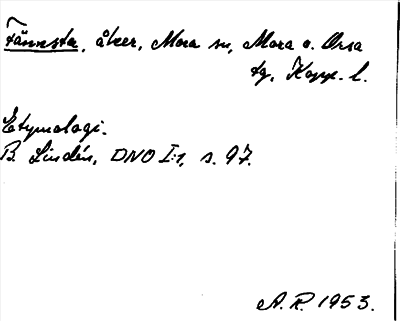 Fännsta, åker, Mora sn, Mora o. Orsa
tg, Kopp. l.
Etymologi.
B. Lindén, DNO I:1, s. 97.
A. R. 1953.